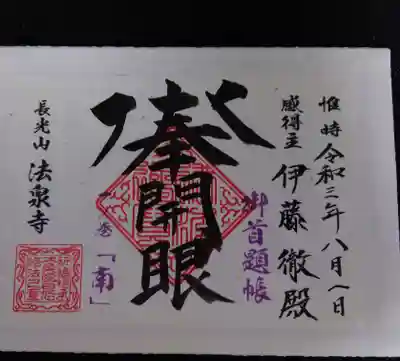 惟時令和三年八月八日
感得主 伊藤徹殿
御首題帳
奉開眼
一巻「南」
長光山 法泉寺